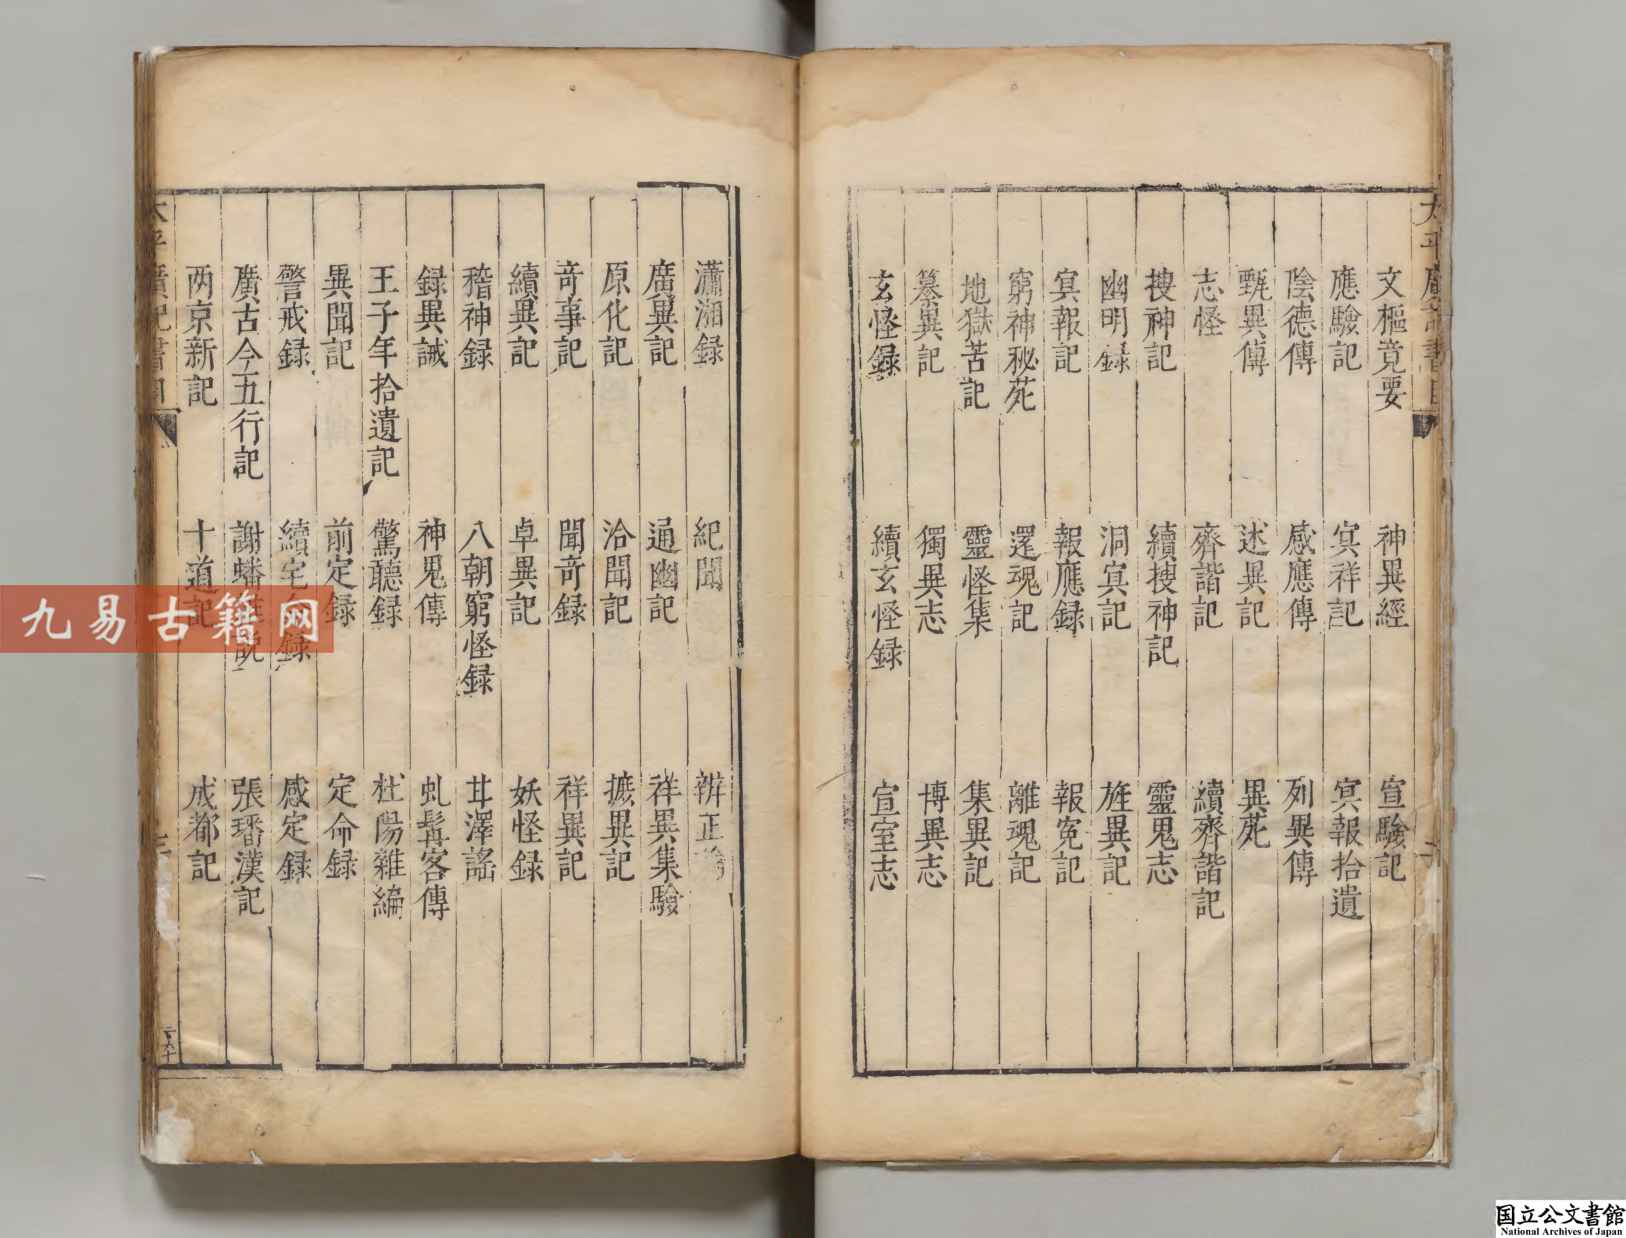 文樞竟要 神異經 宣驗記
應驗記 冥祥記 冥報拾遺
陰德傳 感應傳 列異傳
甄異傳 述異記 異苑
志怪 齊諧記 續齊諧記
搜神記 續搜神記 靈鬼志
幽明録 洞冥記 旌異記
冥報記 報應録 報寃記
窮神秘苑 還魂記 離魂記
地獄苦記 靈怪集 集異記
纂異記 獨異志 博異志
玄怪録 續玄怪録 宣室志
瀟湘録 紀聞 辨正論
廣異記 通幽記 祥異集驗
原化記 洽聞記 摭異記
竒事記 聞竒録 祥異記
續異記 卓異記 妖怪録
稽神録 八朝窮怪録 甘澤謠
録異誡 神鬼傳 虬髯客傳
王子年拾遺記 驚聽録 杜陽雜編
異聞記 前定録 定命録
警戒録 續定命録 感定録
廣古今五行記 謝蟠雜説 張璠漢記
两京新記 十道記 成都記
太平廣記書目
九易古籍网
国立公文書館
National Archives of Japan